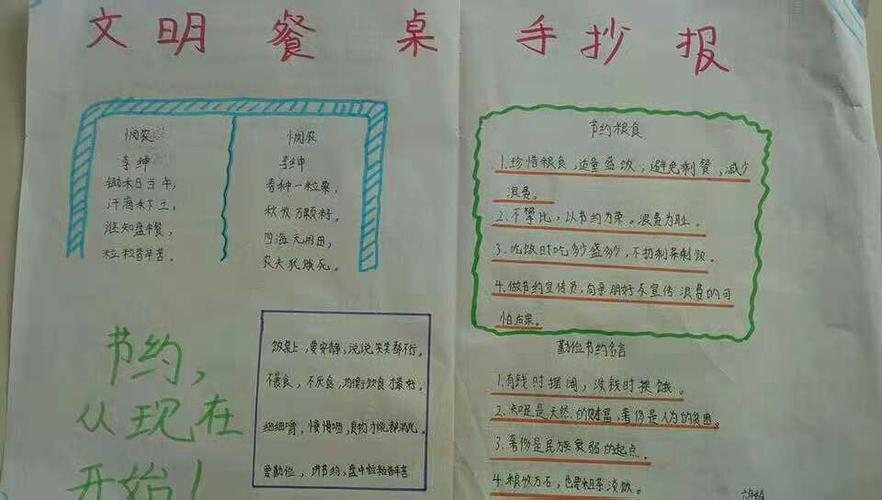 文明餐桌手抄报
悯农
李绅
锄禾日当午，
汗滴禾下土，
谁知盘中餐，
粒粒皆辛苦。
悯农
李绅
春种一粒粟，
秋收万颗籽。
四海无闲田，
农夫犹饿死。
节约，
从现在
开始！
饭桌上，要安静，说说笑笑都不行。
不暴食，不厌食，均衡饮食才最好。
细细嚼，慢慢咽，食物才能都消化。
爱勤俭，讲节约，盘中粒粒皆辛苦
节约粮食
1.珍惜粮食，适量盛饭，避免剩餐，减少
浪费。
2.不攀比，以节约为荣。浪费为耻。
3.吃饭时吃多少盛多少，不扔剩菜剩饭。
4.做节约宣传员，向亲朋好友宣传浪费的可
怕后果。
勤俭节约名言
1.有钱时摆阔，没钱时挨饿。
2.知足是天然的财富，奢侈是人为的贫困。
3.奢侈是民族衰弱的起点。
4.粮收万石，也要粗茶淡饭。